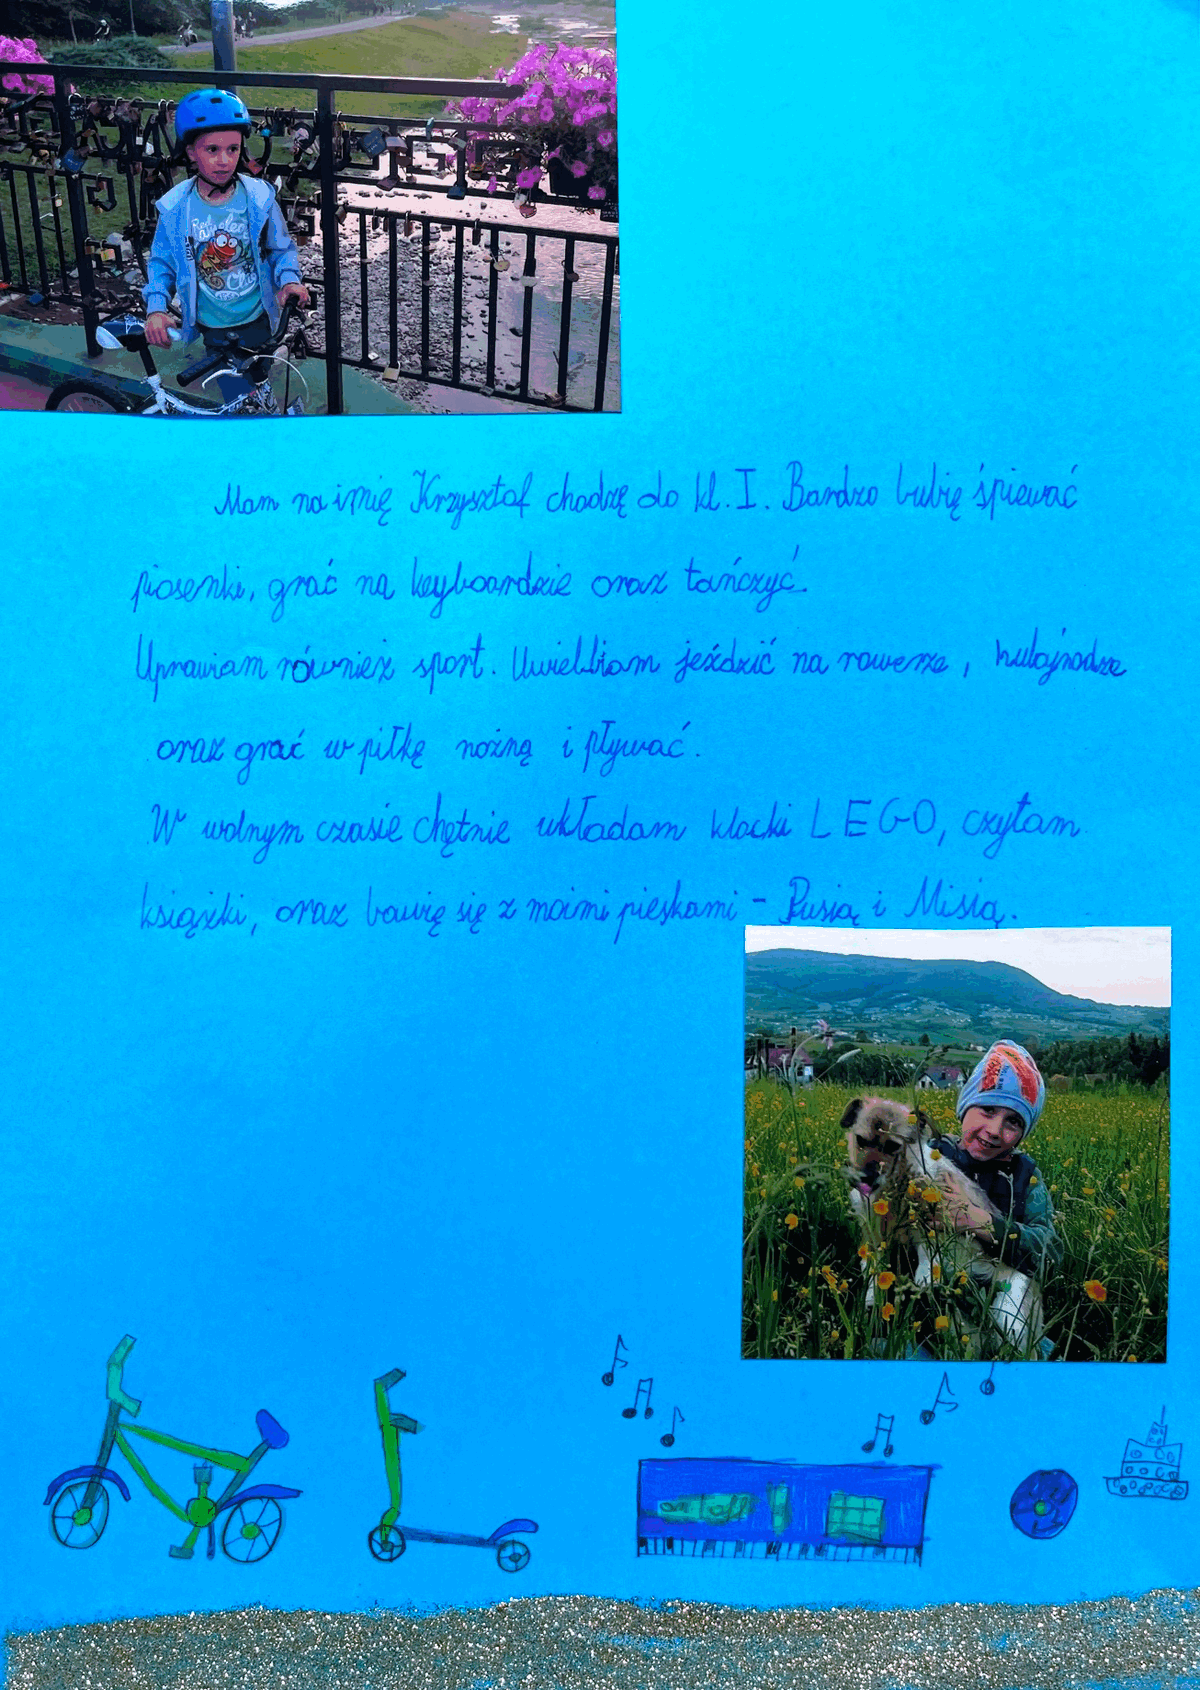 Mam na imię Krzysztof chodzę do kl. I. Bardzo lubię śpiewać
piosenki, grać na keyboardzie oraz tańczyć.
Uprawiam również sport. Uwielbiam jeździć na rowerze, hulajnodze
oraz grać w piłkę nożną i pływać.
W wolnym czasie chętnie układam klocki LEGO, czytam
książki, oraz bawię się z moimi pieskami - Pusią i Misią.